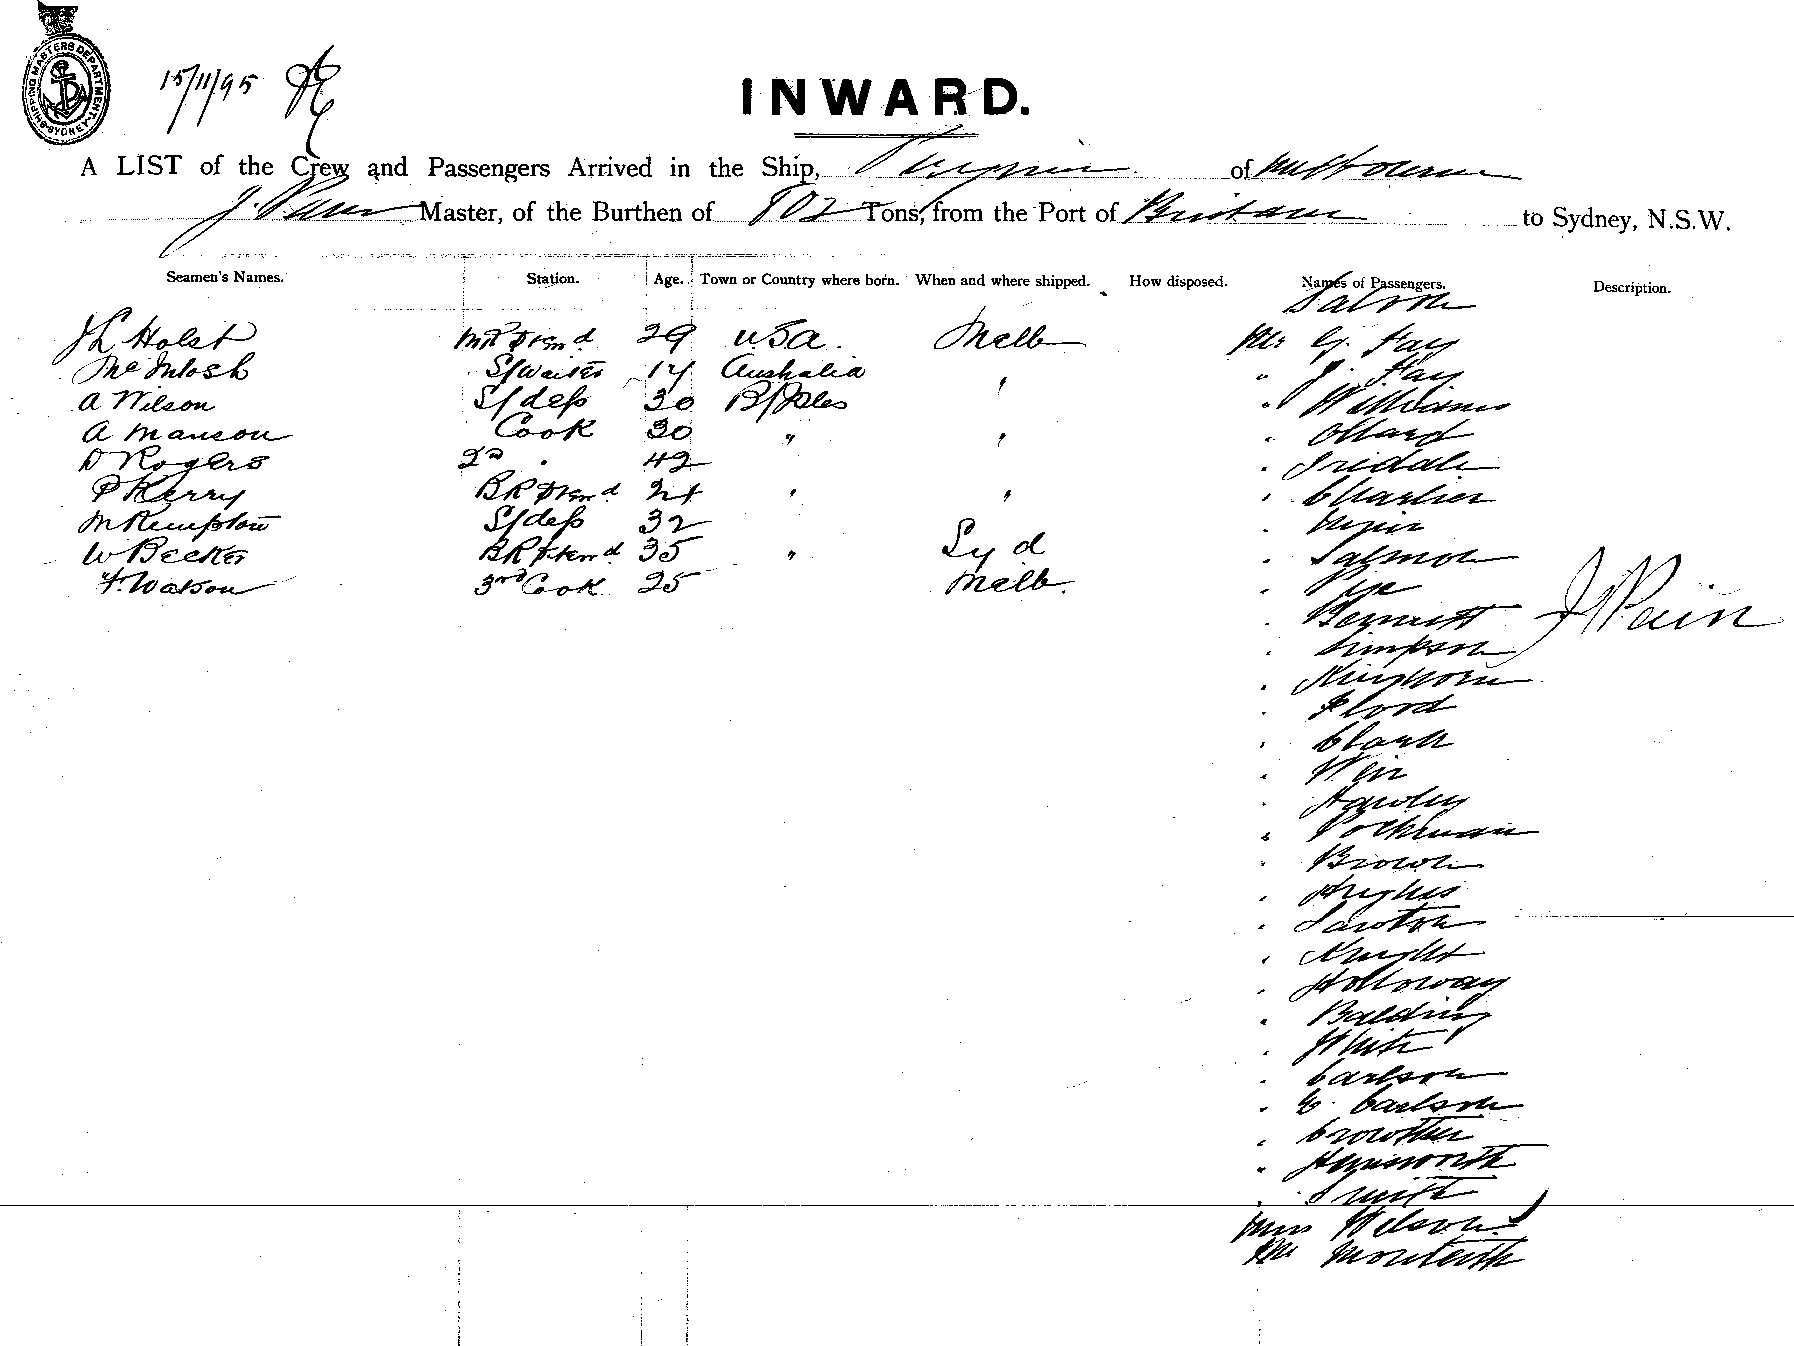 SHIPPING MASTERS DEPARTMENT SYDNEY
15/11/95
INWARD.
A LIST of the Crew and Passengers Arrived in the Ship, of Melbourne
J. Pain Master, of the Burthen of 802 Tons, from the Port of Brisbane to Sydney, N.S.W.
Seamen's Names. Station. Age. Town or Country where born. When and where shipped. How disposed. Names of Passengers. Description.
Saloon
J L Holst 29 USA. Melb Mr G. Hay
McIntosh S/waiter 17 Australia " " J. Hay
A Wilson 30 B/Isles " Williams
A Manson Cook 30 " " " Ollard
D Rogers 2nd " 42 " Iredale
P Kerry 24 " " " Charlier
M Kempton 32 " Napier
W Becker 35 " Syd " Salmon
F. Watson 3rd Cook 25 Melb. "
" Bennett
J Pain
" Simpson
" Kinghorn
" Flood
" Clark
" Weir
" Hawley
" Pockman
" Brown
" Hughes
" Lawton
" Knight
" Holloway
" Balding
" White
" Carlson
" C. Carlson
" Crowther
"
" Swift
Miss Wilson
Mr Monteith